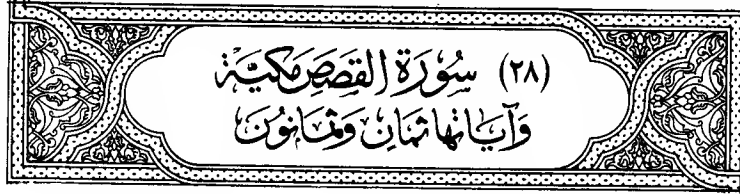 (٢٨) سُورَة القَصَصِ مَكيَّة
وَآيَاتهَا ثمَانٍ وَثمَانُونَ